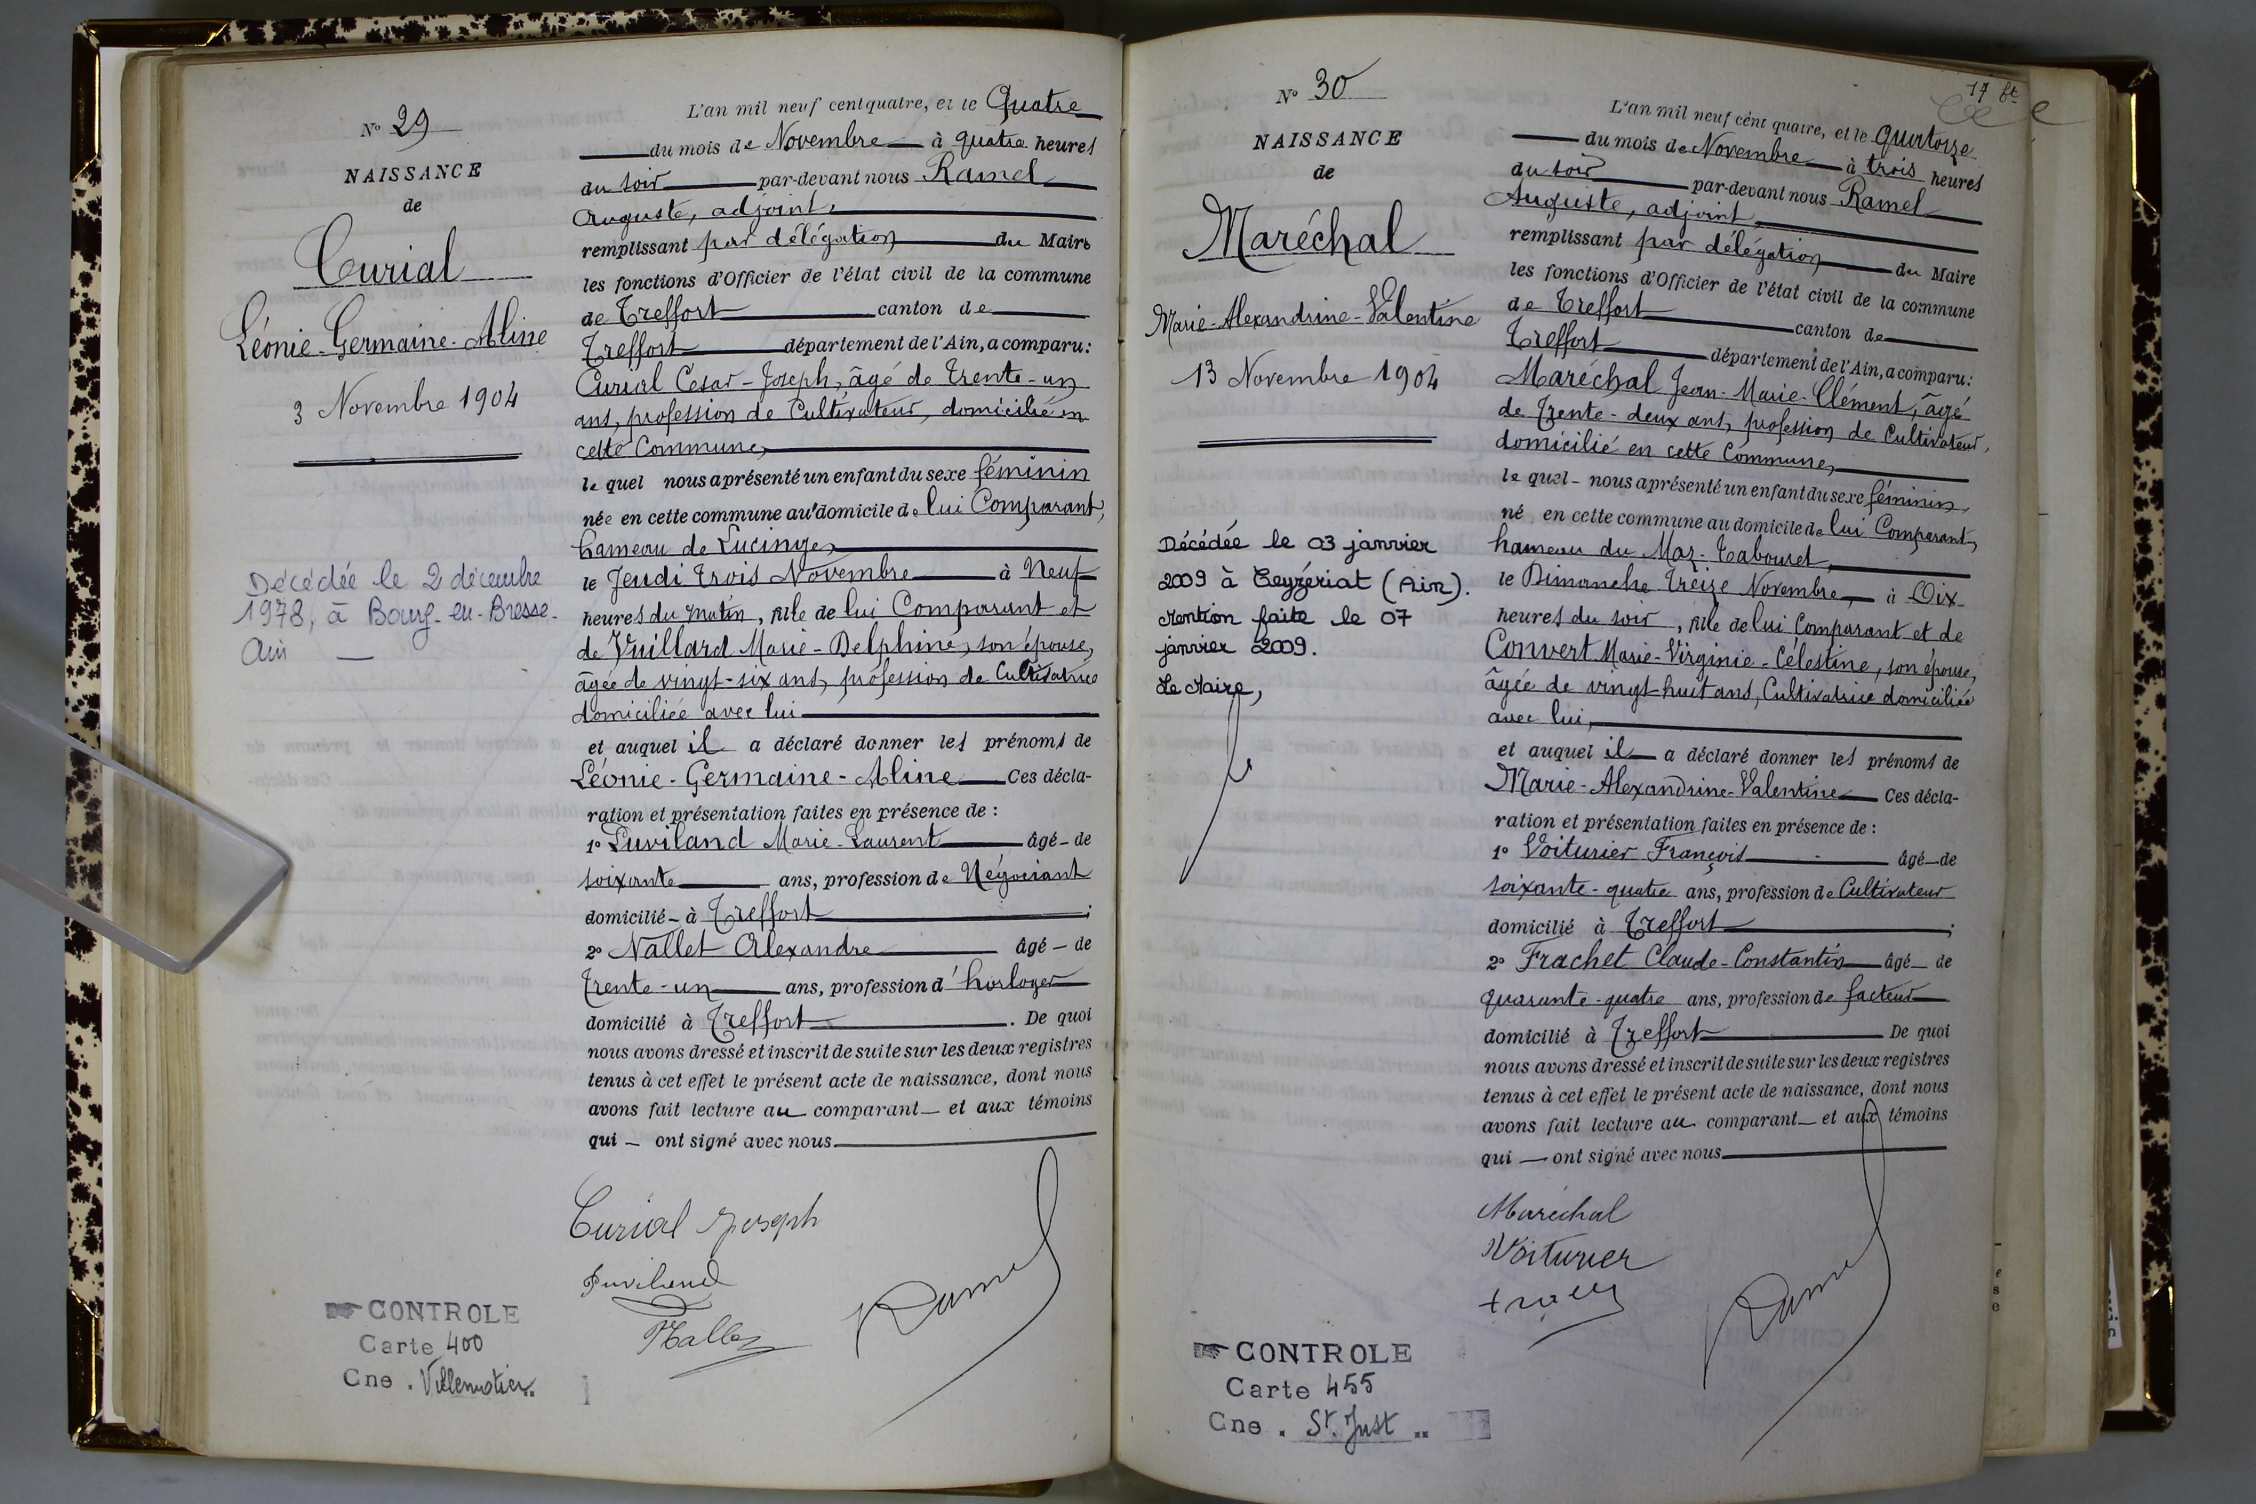 Nº 29
NAISSANCE
de
Curial
Léonie-Germaine-Aline
3 Novembre 1904
Décédée le 2 décembre
1978, à Bourg-en-Bresse-
Ain —
CONTROLE
Carte 400
Cne . Villemotier.
L'an mil neuf cent quatre, et le Quatre
du mois de Novembre à quatre heures
du soir par-devant nous Ramel
Auguste, adjoint,
remplissant par délégation du Maire
les fonctions d'Officier de l'état civil de la commune
de Treffort canton de
Treffort département de l'Ain, a comparu:
Curial Cesar-Joseph, âgé de Trente-un
ans, profession de Cultivateur, domicilié en
cette Commune,
lequel nous a présenté un enfant du sexe féminin
née en cette commune au domicile de lui Comparant,
hameau de Lucinges,
le Jeudi Trois Novembre à Neuf
heures du matin, fille de lui Comparant et
de Vuillard Marie-Delphine, son épouse,
âgée de vingt-six ans, profession de Cultivatrice
domiciliée avec lui
et auquel il a déclaré donner les prénoms de
Léonie-Germaine-Aline Ces décla-
ration et présentation faites en présence de :
1º Puviland Marie-Laurent âgé de
soixante ans, profession de Négociant
domicilié à Treffort ;
2º Nallet Alexandre âgé de
Trente-un ans, profession d'horloger
domicilié à Treffort . De quoi
nous avons dressé et inscrit de suite sur les deux registres
tenus à cet effet le présent acte de naissance, dont nous
avons fait lecture au comparant et aux témoins
qui ont signé avec nous
Curial Joseph
Puviland
Nallet
Ramel
Nº 30
NAISSANCE
de
Maréchal
Marie-Alexandrine-Valentine
13 Novembre 1904
Décédée le 03 janvier
2009 à Ceyzériat (Ain).
Mention faite le 07
janvier 2009.
Le Maire,
CONTROLE
Carte 455
Cne . St. Just
17 ft
L'an mil neuf cent quatre, et le Quatorze
du mois de Novembre à trois heures
du soir par-devant nous Ramel
Auguste, adjoint,
remplissant par délégation du Maire
les fonctions d'Officier de l'état civil de la commune
de Treffort canton de
Treffort département de l'Ain, a comparu:
Maréchal Jean-Marie-Clément, âgé
de Trente-deux ans, profession de Cultivateur,
domicilié en cette Commune,
lequel nous a présenté un enfant du sexe féminin,
né en cette commune au domicile de lui Comparant,
hameau du Mas-Tabouret,
le Dimanche Treize Novembre, à Dix
heures du soir, fille de lui Comparant et de
Convert Marie-Virginie-Célestine, son épouse,
âgée de vingt huit ans, Cultivatrice domiciliée
avec lui,
et auquel il a déclaré donner les prénoms de
Marie-Alexandrine-Valentine Ces décla-
ration et présentation faites en présence de :
1º Voiturier François âgé de
soixante-quatre ans, profession de Cultivateur
domicilié à Treffort ;
2º Frachet Claude-Constantin âgé de
quarante-quatre ans, profession de facteur
domicilié à Treffort De quoi
nous avons dressé et inscrit de suite sur les deux registres
tenus à cet effet le présent acte de naissance, dont nous
avons fait lecture au comparant et aux témoins
qui ont signé avec nous
Maréchal
Voiturier
Ramel